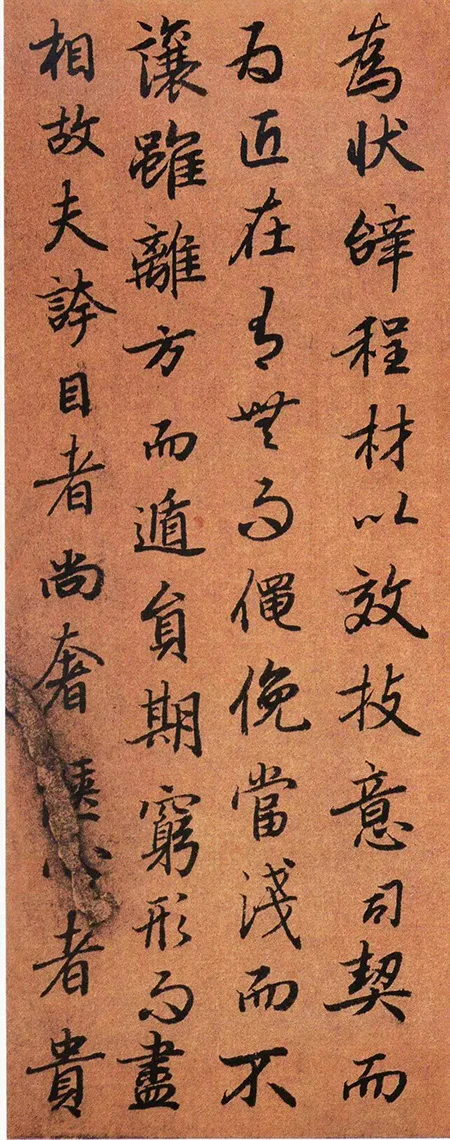 為狀辭程材以效技意司契而
為匠在有無而僶俛當淺而不
讓雖離方而遁員期窮形而盡
相故夫誇目者尚奢愜心者貴